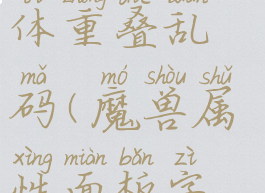 体重叠乱
mǎ mó shòu shǔ
码(魔兽属
xìng miàn bǎn zì
性面板字